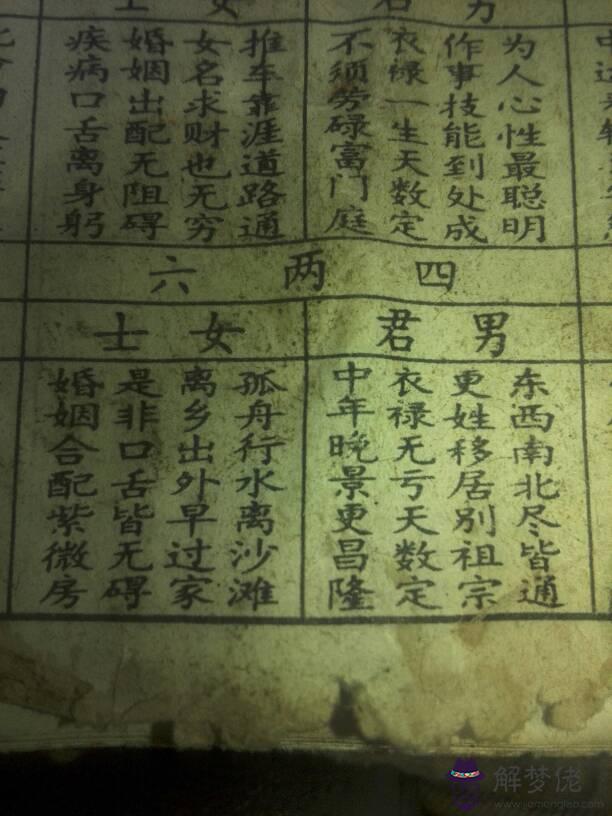 女士
为人心性最聪明
作事技能到处成
衣禄一生天数定
不须劳碌富门庭
推车靠涯道路通
女名求财也无穷
婚姻出配无阻碍
疾病口舌离身躬
四两六
男君
东西南北尽皆通
更姓移居别祖宗
衣禄无亏天数定
中年晚景更昌隆
女士
孤舟行水离沙滩
离乡出外早过家
是非口舌皆无碍
婚姻合配紫微房
解梦佬
www.jiemenglao.com